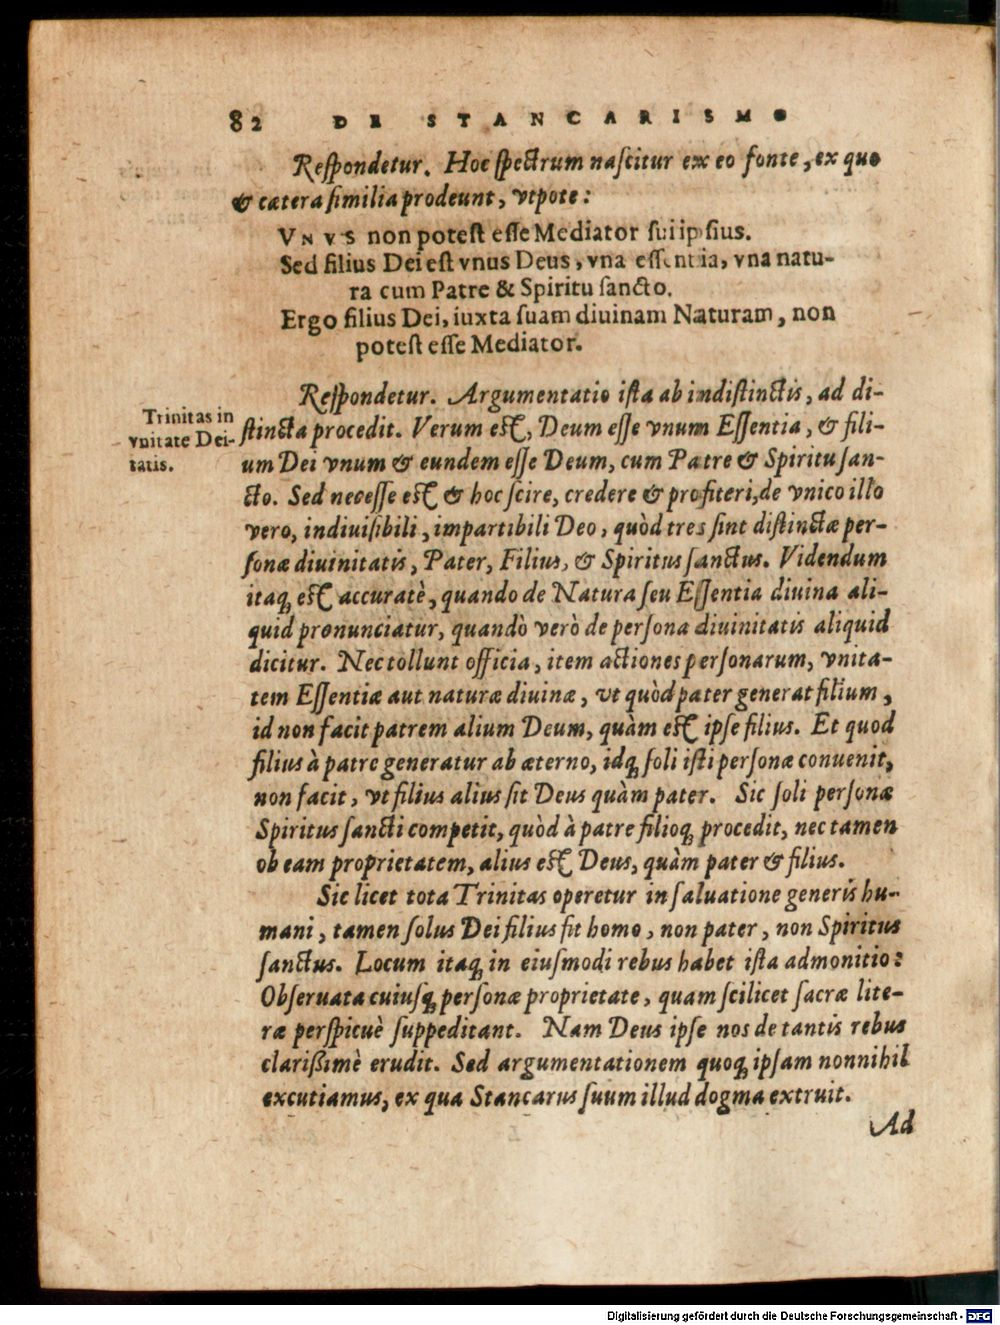 82 DE STANCARISMO
Respondetur. Hoc spectrum nascitur ex eo fonte, ex quo
& cætera similia prodeunt, vtpote:
VNVS non potest esse Mediator sui ipsius.
Sed filius Dei est vnus Deus, vna essentia, vna natu-
ra cum Patre & Spiritu sancto.
Ergo filius Dei, iuxta suam diuinam Naturam, non
potest esse Mediator.
Respondetur. Argumentatio ista ab indistinctis, ad di-
Trinitas in
vnitate Dei-
tatis.
stincta procedit. Verum est, Deum esse vnum Essentia, & fili-
um Dei vnum & eundem esse Deum, cum Patre & Spiritu san-
cto. Sed necesse est & hoc scire, credere & profiteri, de vnico illo
vero, indiuisibili, impartibili Deo, quòd tres sint distinctæ per-
sonæ diuinitatis, Pater, Filius, & Spiritus sanctus. Videndum
itaq; est accuratè, quando de Natura seu Essentia diuina ali-
quid pronunciatur, quandò verò de persona diuinitatis aliquid
dicitur. Nec tollunt officia, item actiones personarum, vnita-
tem Essentiæ aut naturæ diuinæ, vt quòd pater generat filium,
id non facit patrem alium Deum, quàm est ipse filius. Et quod
filius à patre generatur ab æterno, idq; soli isti personæ conuenit,
non facit, vt filius alius sit Deus quàm pater. Sic soli personæ
Spiritus sancti competit, quòd à patre filioq; procedit, nec tamen
ob eam proprietatem, alius est Deus, quàm pater & filius.
Sic licet tota Trinitas operetur in saluatione generis hu-
mani, tamen solus Dei filius fit homo, non pater, non Spiritus
sanctus. Locum itaq; in eiusmodi rebus habet ista admonitio:
Obseruata cuiusq; personæ proprietate, quam scilicet sacræ lite-
ræ perspicuè suppeditant. Nam Deus ipse nos de tantis rebus
clarißimè erudit. Sed argumentationem quoq; ipsam nonnihil
excutiamus, ex qua Stancarus suum illud dogma extruit.
Ad
Digitalisierung gefördert durch die Deutsche Forschungsgemeinschaft - DFG